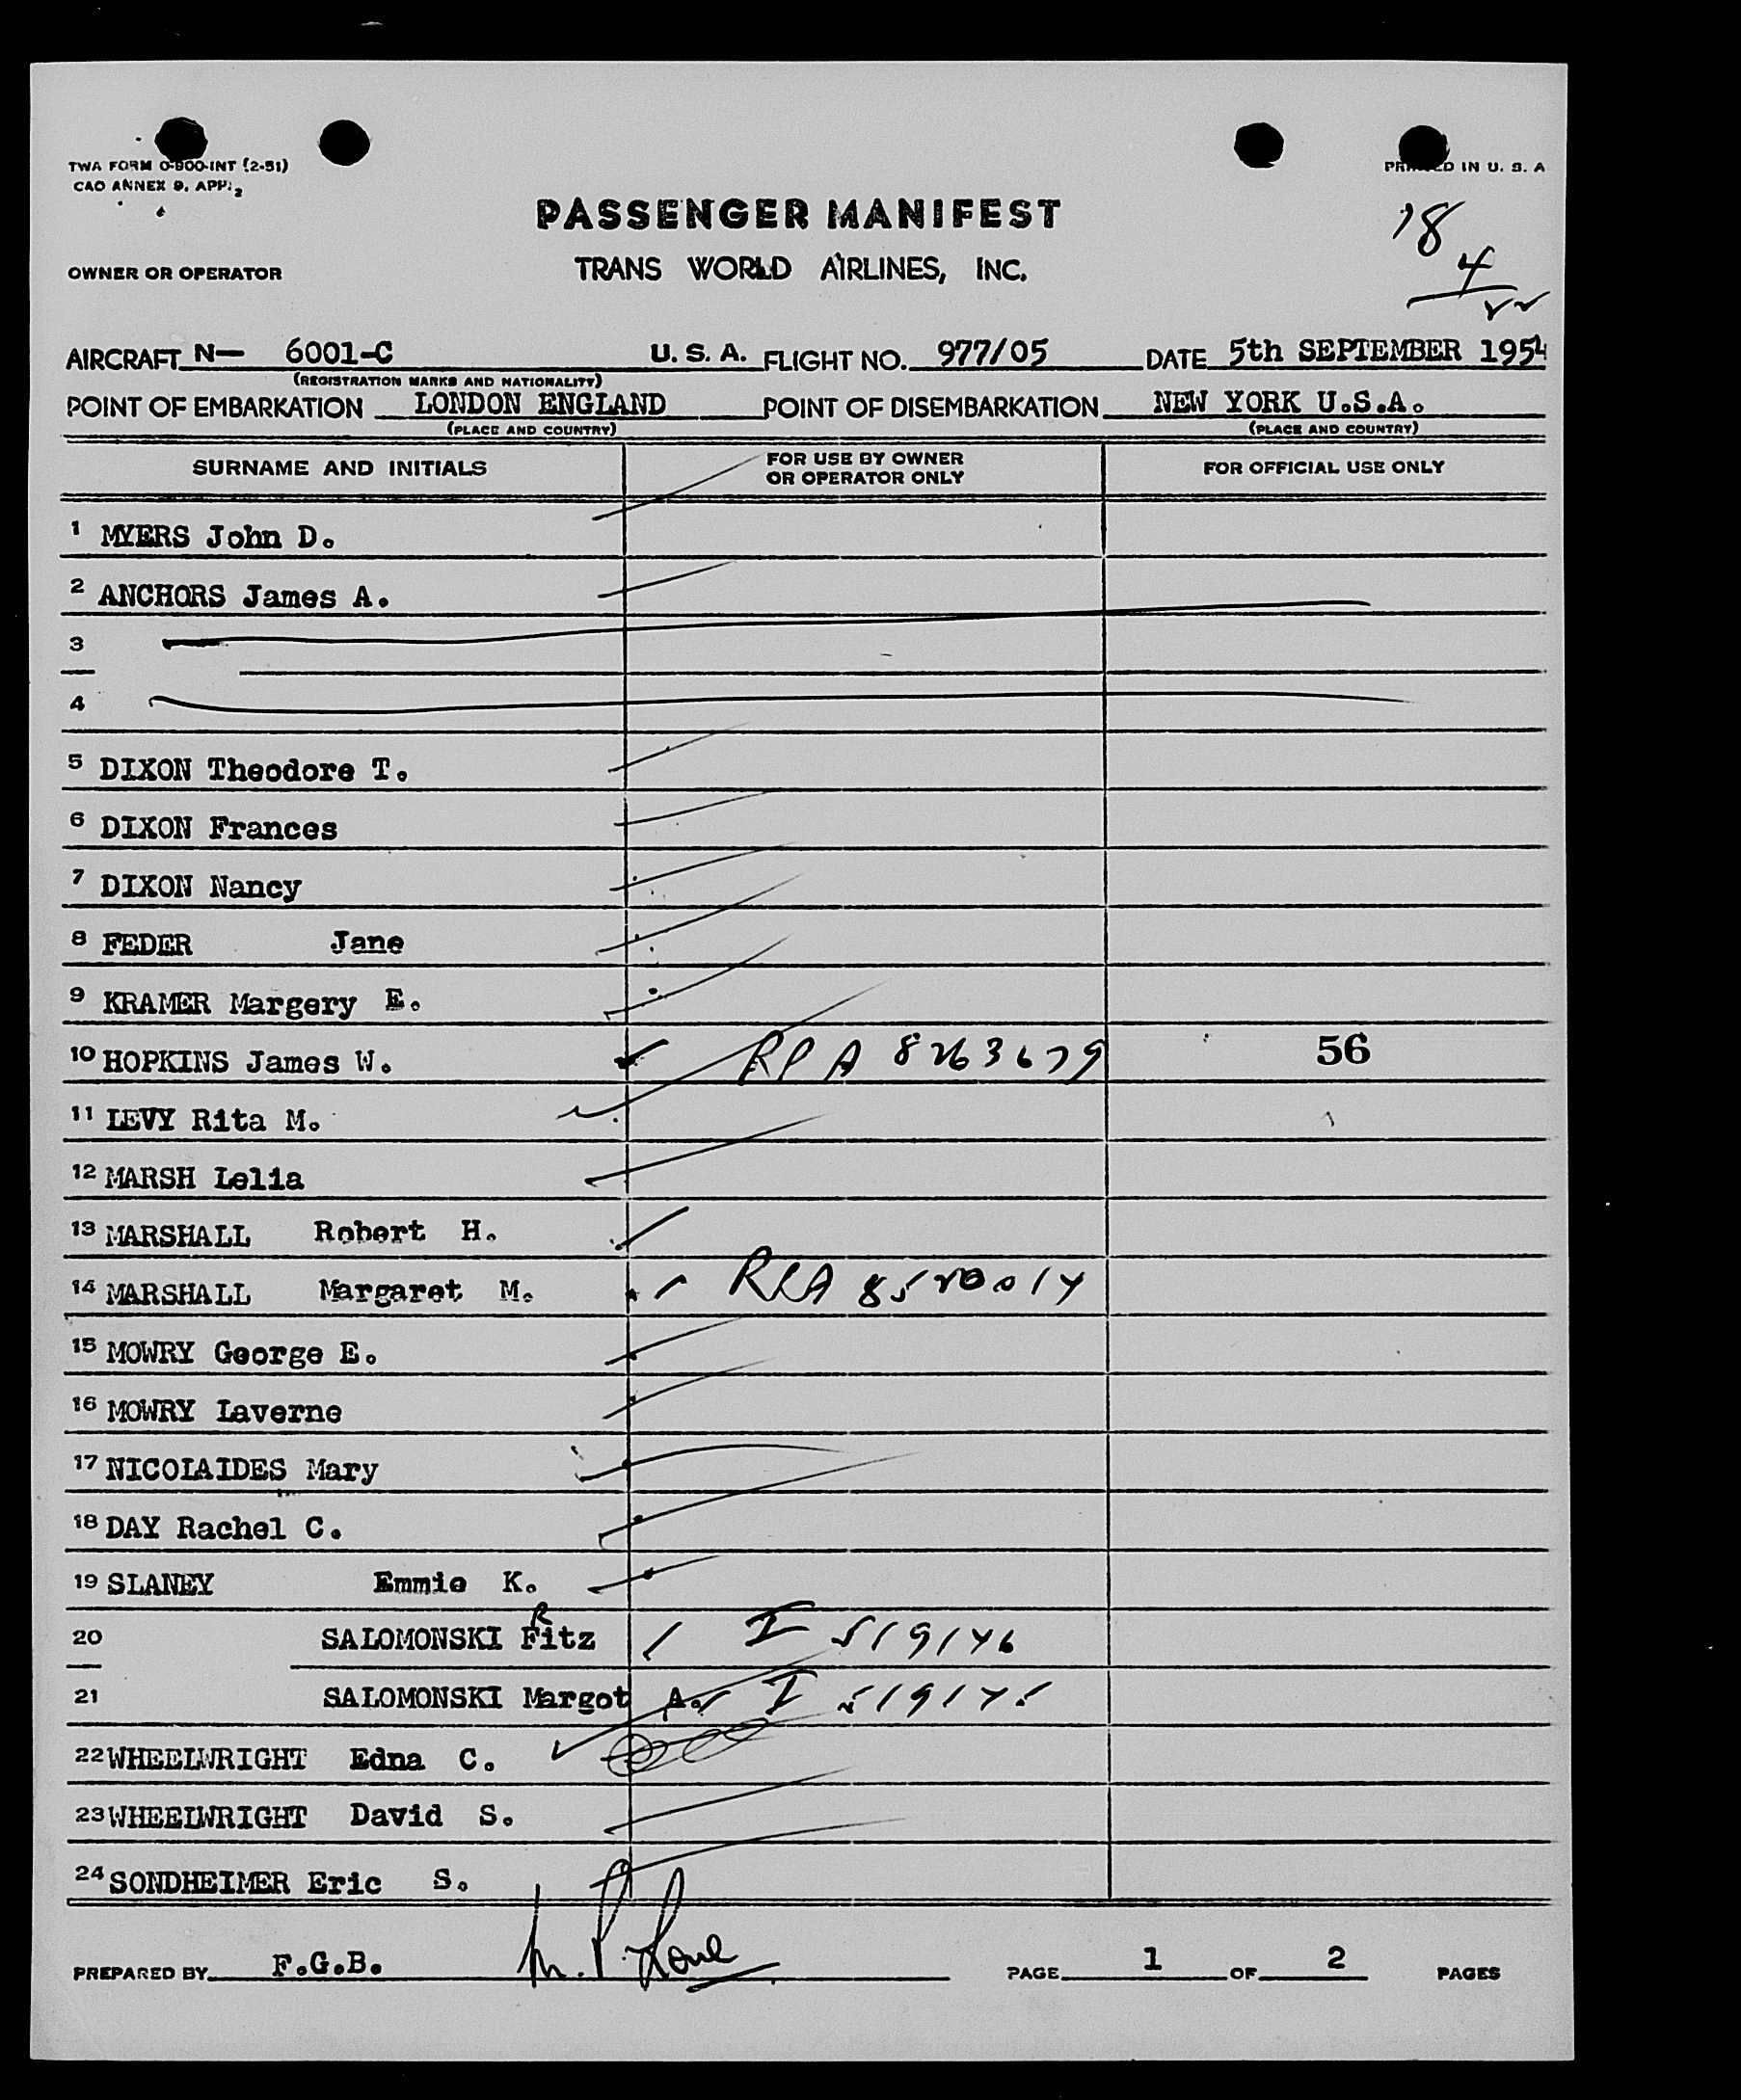 TWA FORM 0-900-INT (2-51)
CAO ANNEX 9, APP. 2
IN U. S. A
PASSENGER MANIFEST
18
4
OWNER OR OPERATOR
TRANS WORLD AIRLINES, INC.
AIRCRAFT N— 6001-C U. S. A. FLIGHT NO. 977/05 DATE 5th SEPTEMBER 1954
(REGISTRATION MARKS AND NATIONALITY)
POINT OF EMBARKATION LONDON ENGLAND POINT OF DISEMBARKATION NEW YORK U.S.A.
(PLACE AND COUNTRY) (PLACE AND COUNTRY)
SURNAME AND INITIALS FOR USE BY OWNER OR OPERATOR ONLY FOR OFFICIAL USE ONLY
1 MYERS John D.
2 ANCHORS James A.
3
4
5 DIXON Theodore T.
6 DIXON Frances
7 DIXON Nancy
8 FEDER Jane
9 KRAMER Margery E.
10 HOPKINS James W. RPA 8263679 56
11 LEVY Rita M.
12 MARSH Lelia
13 MARSHALL Robert H.
14 MARSHALL Margaret M.
15 MOWRY George E.
16 MOWRY Laverne
17 NICOLAIDES Mary
18 DAY Rachel C.
19 SLANEY Emmie K.
R
20 SALOMONSKI Fitz I
21 SALOMONSKI Margot A. I
22 WHEELWRIGHT Edna C.
23 WHEELWRIGHT David S.
24 SONDHEIMER Eric S.
PREPARED BY F.G.B. PAGE 1 OF 2 PAGES